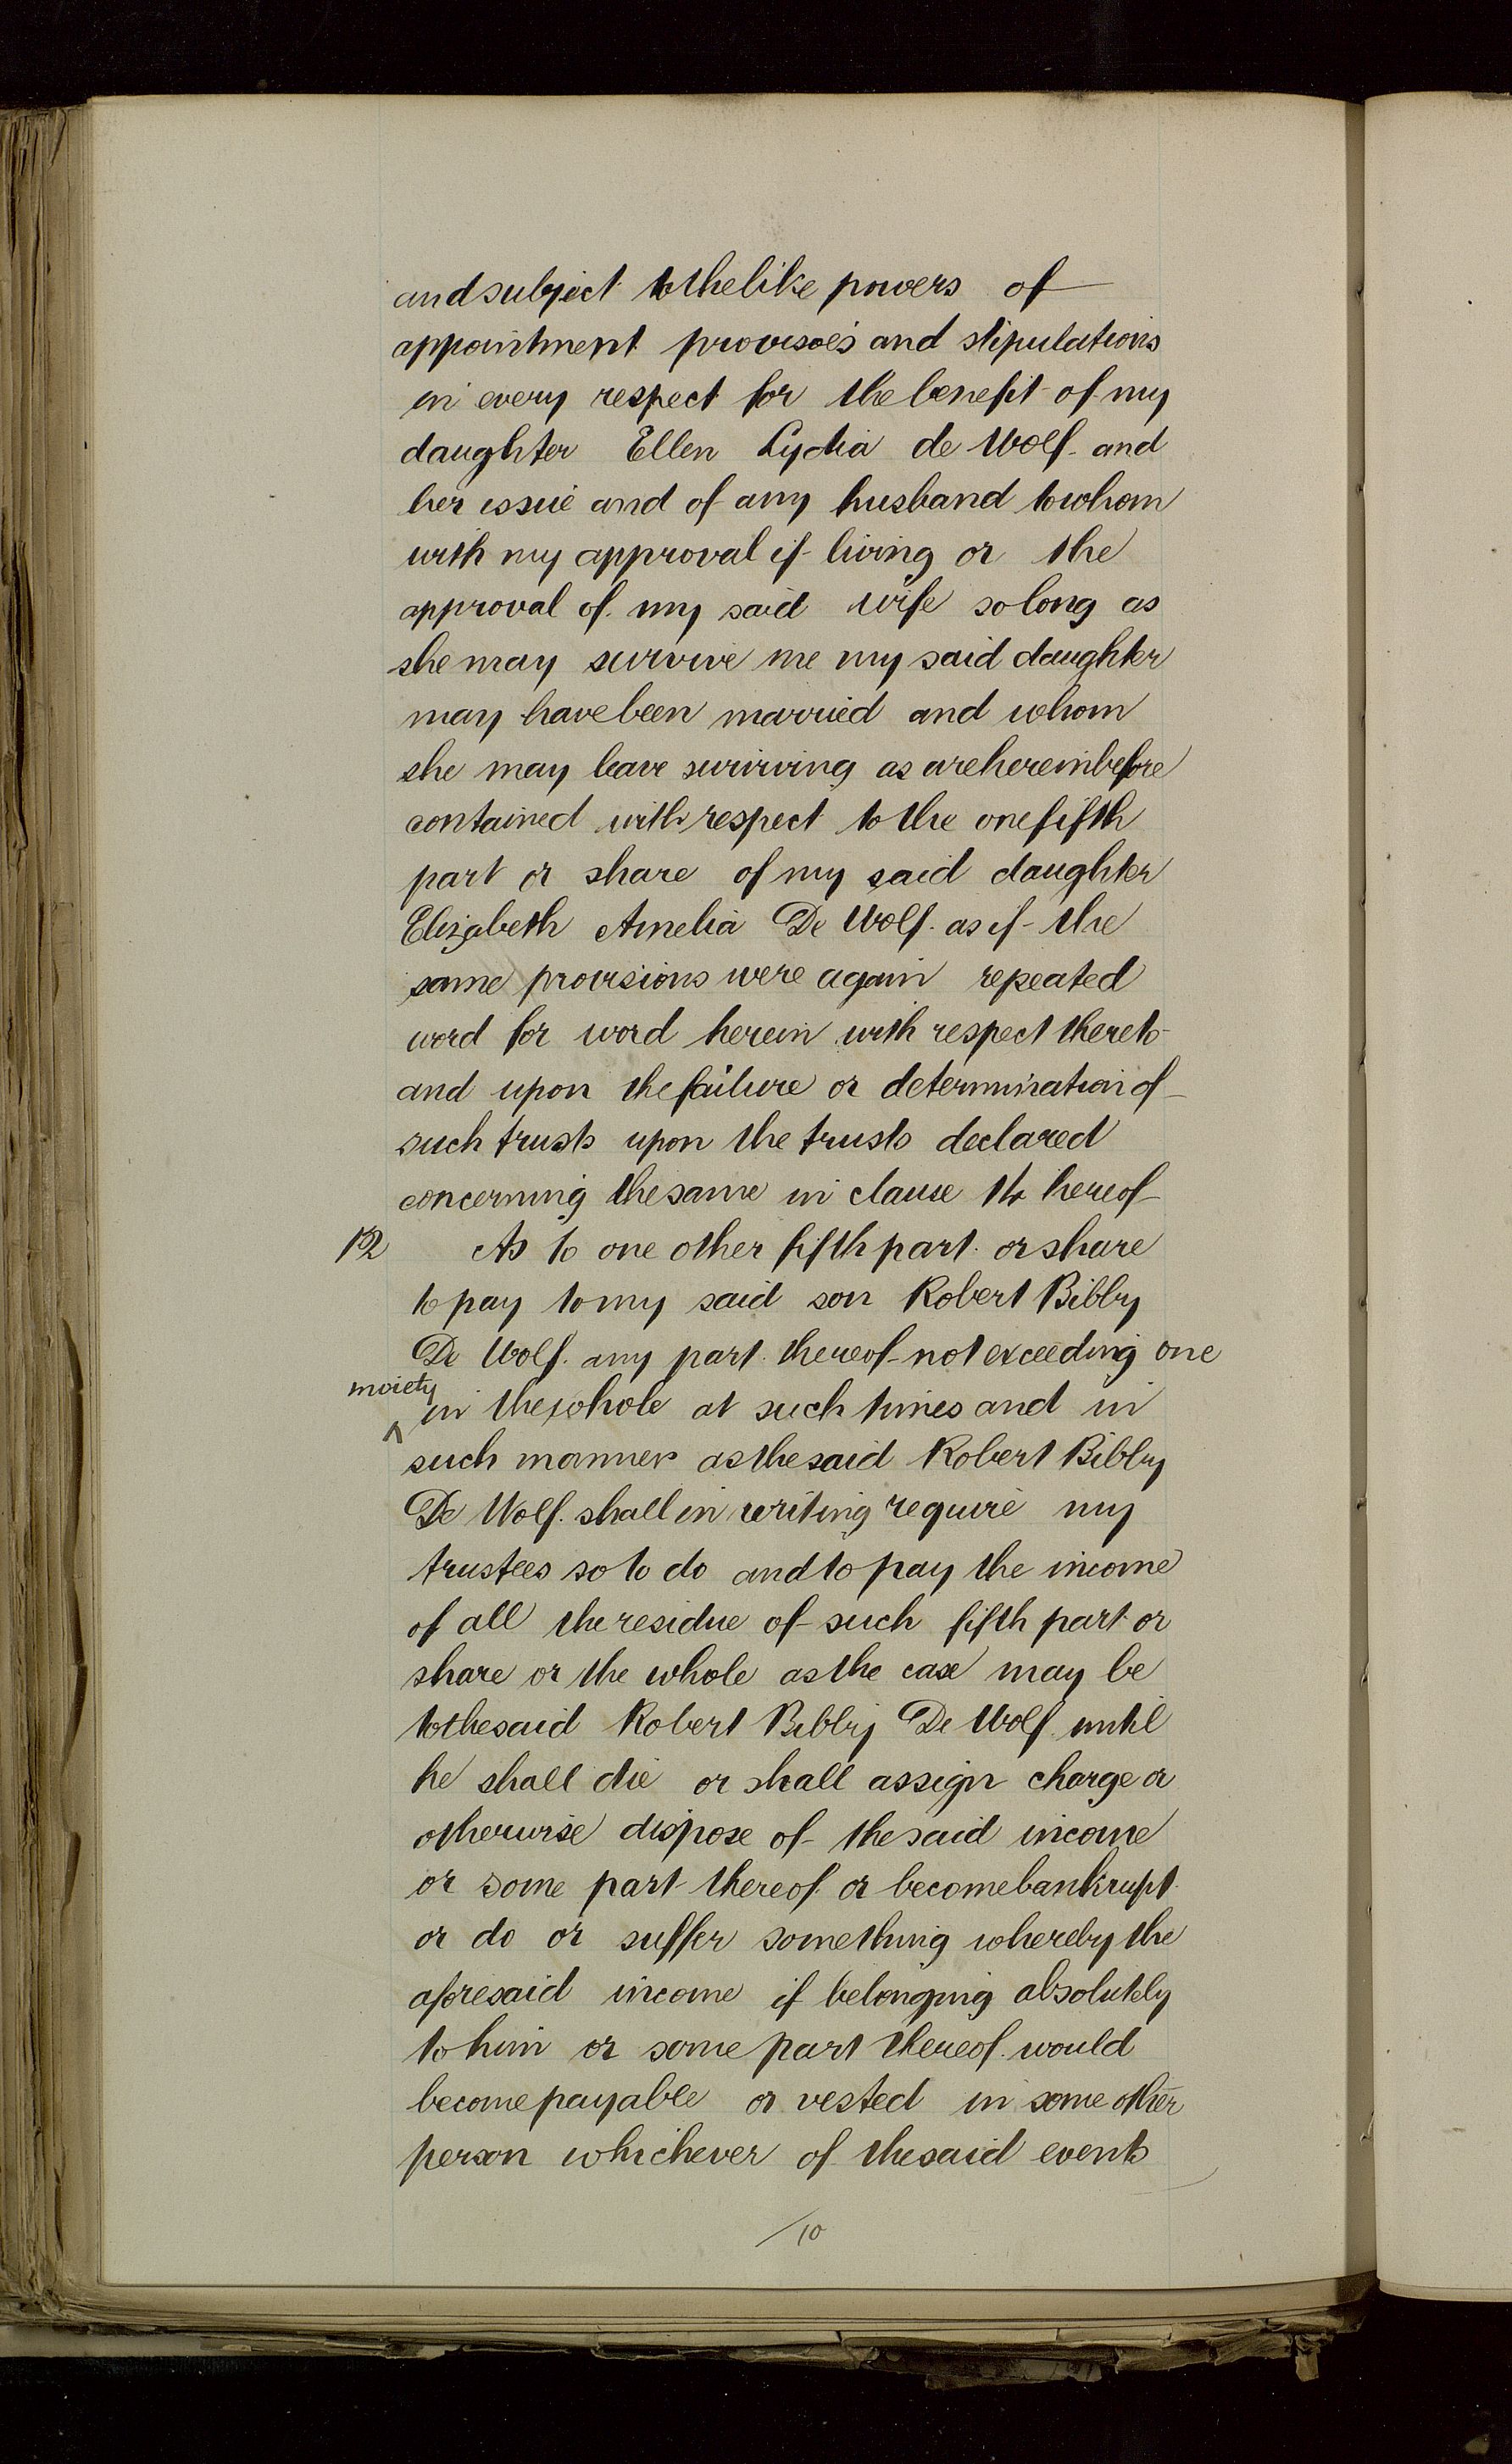 and subject to the like powers of
appointment provisoes and stipulations
in every respect for the benefit of my
daughter Ellen Lydia de Wolf and
her issue and of any husband to whom
with my approval if living or the
approval of my said wife so long as
she may survive me my said daughter
may have been married and whom
she may leave surviving as are hereinbefore
contained with respect to the one fifth
part or share of my said daughter
Elizabeth Amelia De Wolf as if the
same provisions were again repeated
word for word herein with respect thereto
and upon the failure or determination of
such trusts upon the trusts declared
concerning the same in clause 14 hereof
12 As to one other fifth part or share
to pay to my said son Robert Bibby
De Wolf any part thereof not exceeding one
moiety
^ in the whole at such times and in
such manner as the said Robert Bibby
De Wolf shall in writing require my
trustees so to do and to pay the income
of all the residue of such fifth part or
share or the whole as the case may be
to the said Robert Bibby De Wolf until
he shall die or shall assign charge or
otherwise dispose of the said income
or some part thereof or become bankrupt
or do or suffer something whereby the
aforesaid income if belonging absolutely
to him or some part thereof would
become payable or vested in some other
person whichever of the said events
/10